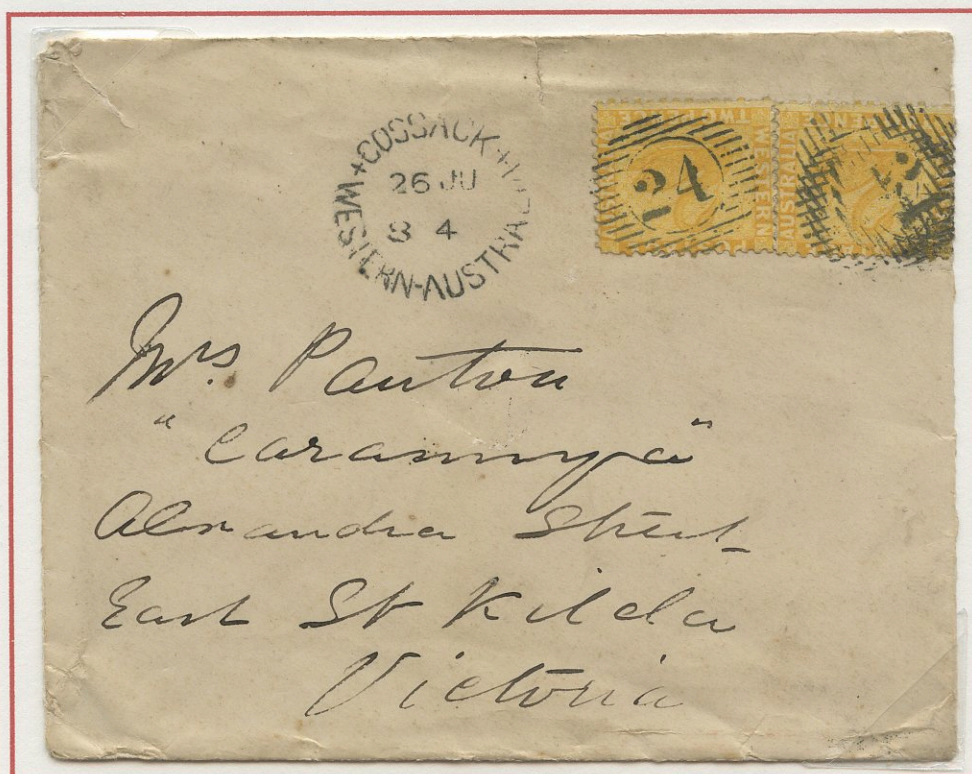 +COSSACK+
26 JU
84
WESTERN-AUSTRALIA
TWO PENCE
WESTERN
AUSTRALIA
24
Mrs. Panton
"Caramnya"
Alexandra Street
East St Kilda
Victoria